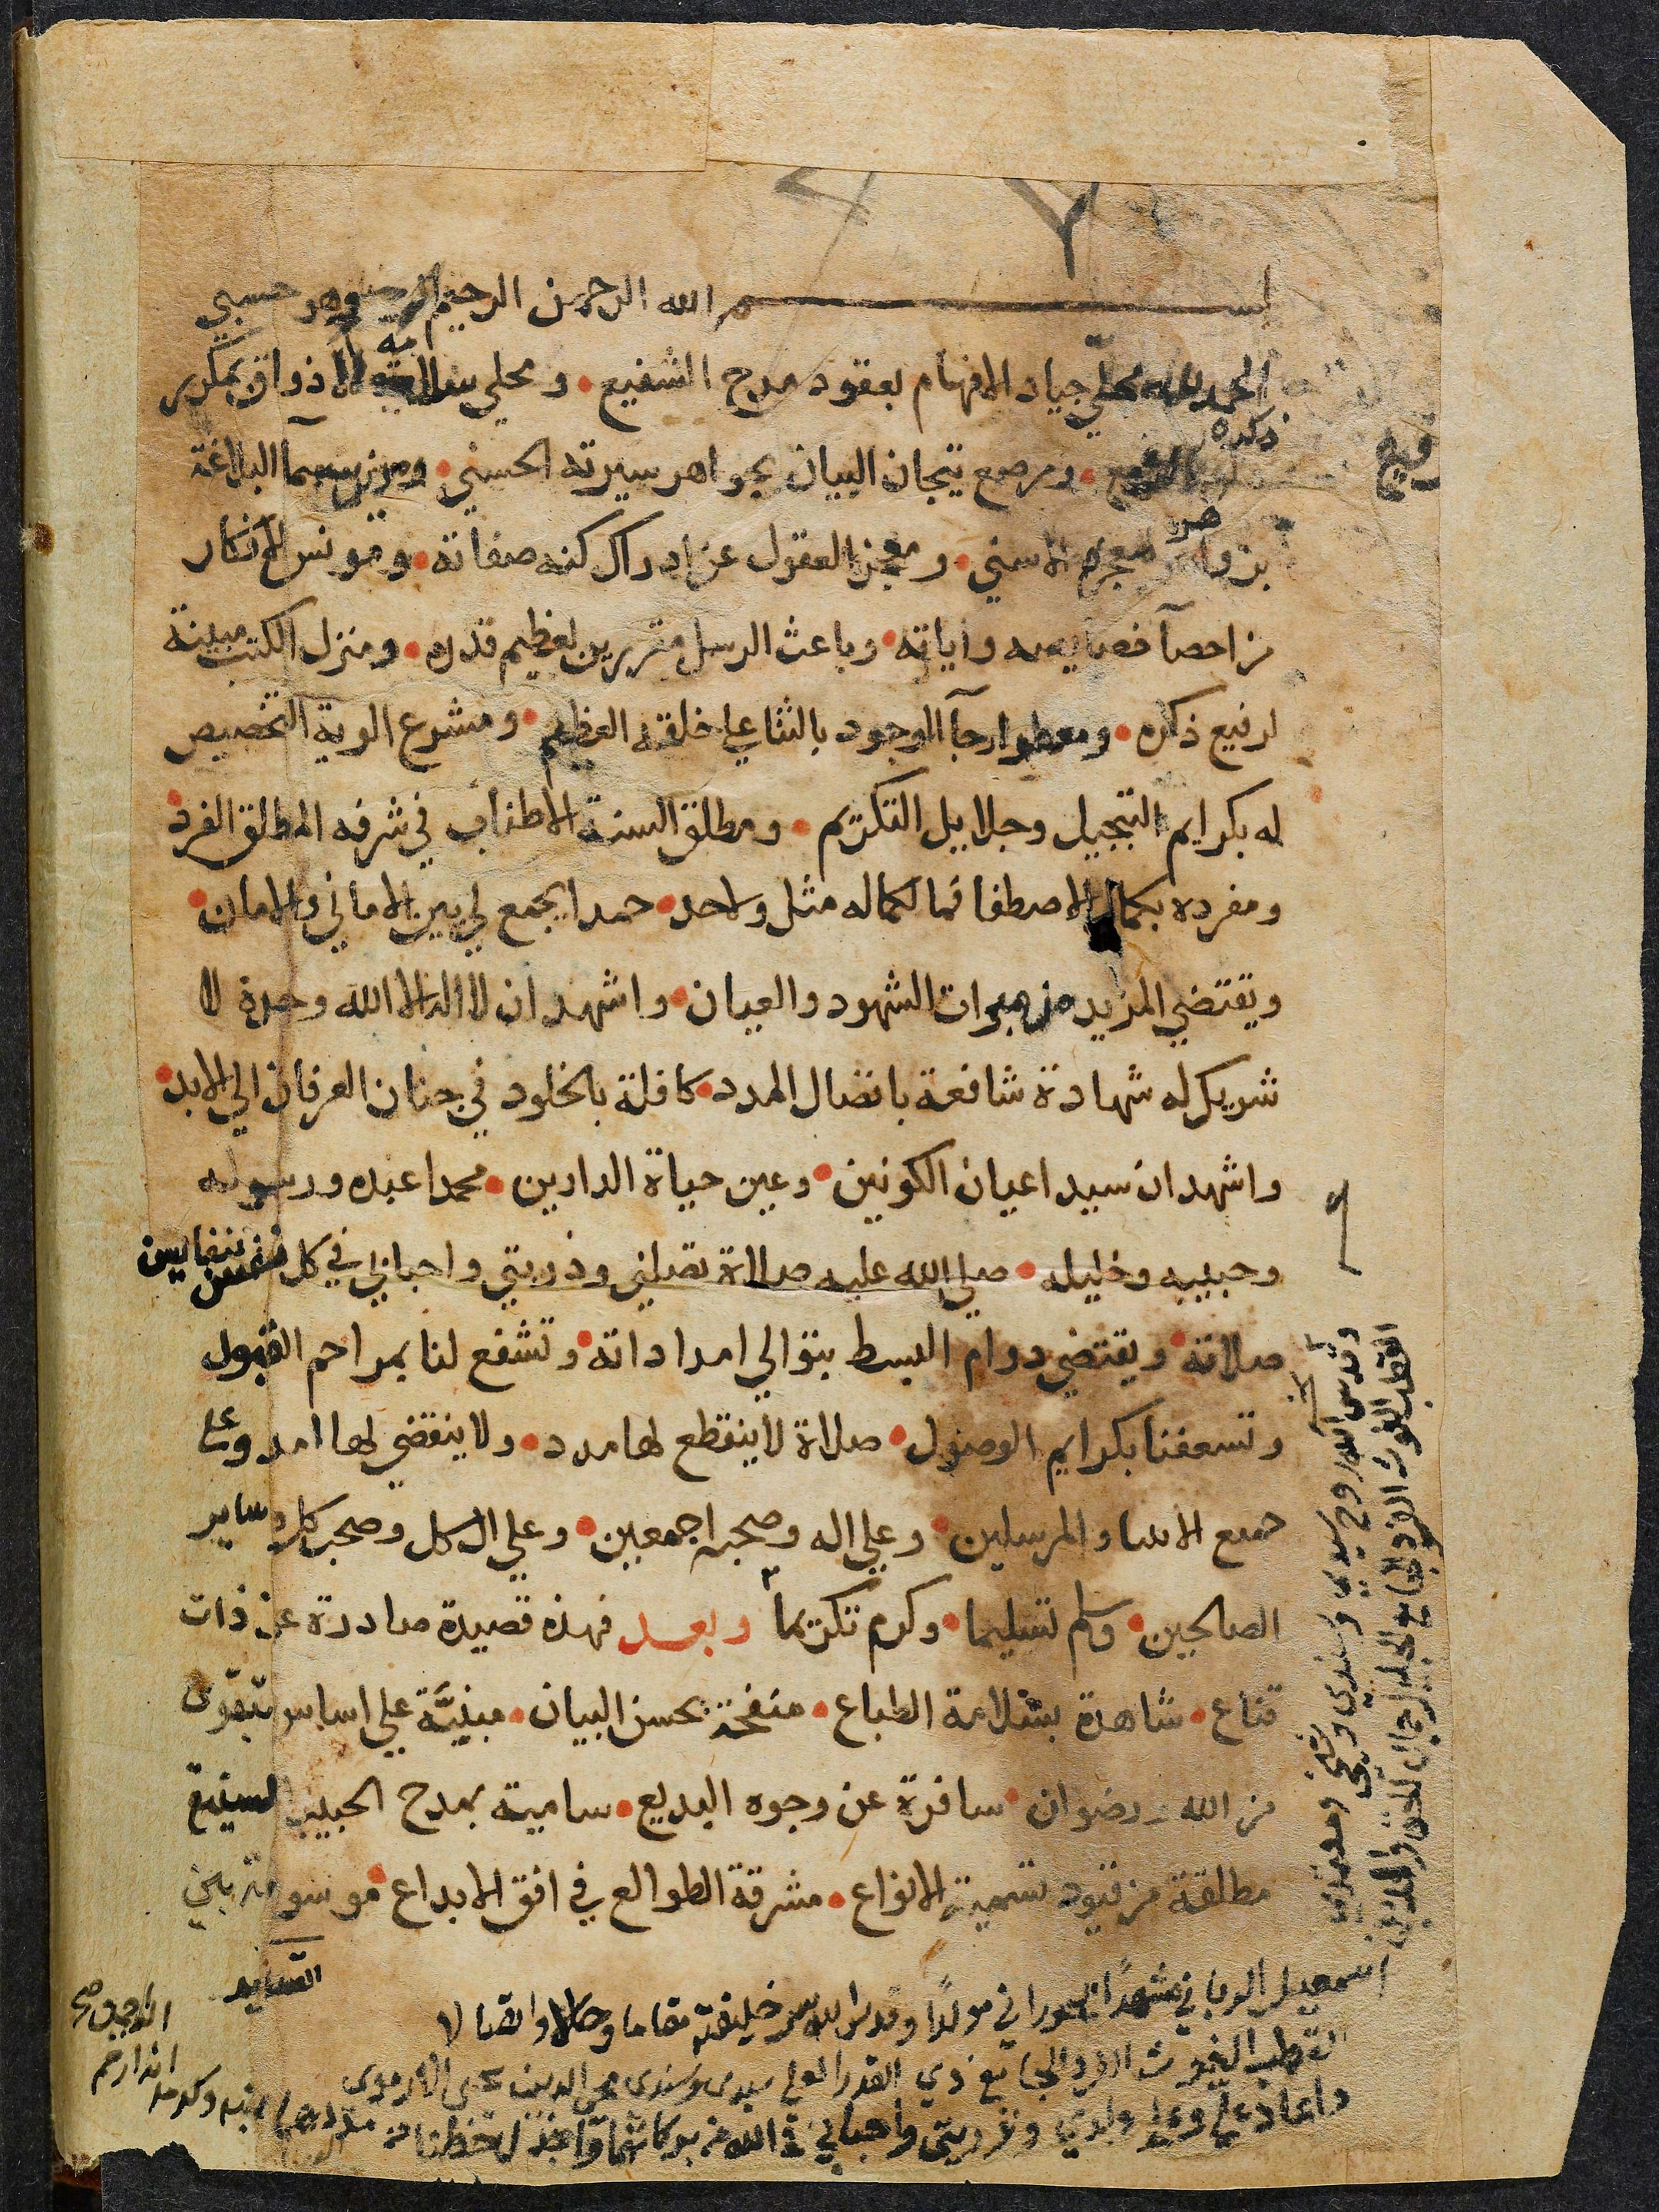 بسم الله الرحمن الرحيم وهو حسبي
الحمد لله محلّي جياد الافهام بعقود مدح الشفيع • ومحلي الاذواق بمكرر
ذكره
الرفيع • ومرصع تيجان البيان بجواهر سيرته الحسني • ومزين سمآ البلاغة
بزواهر معجزه الاسني • ومعجز العقول عن ادراك كنه صفاته • وموئس الافكار
من احصآ خصايصه واياته • وباعث الرسل مقررين لعظيم قدره • ومنزل الكتب مبينة
لرفيع ذكره • ومعطر ارجآ الوجود بالثنا علي خلقه العظيم • ومشرع الوية التخصيص
له بكرايم التبجيل وجلايل التكريم • ومطلق السنة الاطناب في شرفه المطلق الفرد
ومفرده بكمال الاصطفا فما لكماله مثل ولاحد • حمدا يجمع لي بين الاماني والامان •
ويقتضي المزيد من مبرات الشهود والعيان • واشهد ان لا اله الا الله وحده لا
شريك له شهادة شافعة باتصال المدد • كافلة بالخلود في جنان العرفان الي الابد •
واشهد ان سيد اعيان الكونين • وعين حياة الدارين • محمدا عبده ورسوله
وحبيبه وخليله • صلي الله عليه صلاة تصلني وذريتي واحبابي في كل نفس بنفايس
صلاته • ويقتضي دوام البسط بتوالي امداداته • وتشفع لنا بمراحم القبول
وتسعفنا بكرايم الوصول • صلاة لا ينقطع لها مدد • ولا ينقضي لها امد وعلي
جميع الانبيا والمرسلين • وعلي اله وصحبه اجمعين • وعلي ال كل وصحب كل وساير
الصالحين • وسلم تسليما • وكرم تكريما وبعد فهذه قصيدة صادرة عن ذات
قناع • شاهدة بسلامة الطباع • منقحة بحسن البيان • مبنيَّة علي اساس تقوى
من الله ورضوان • سافرة عن وجوه البديع • سامية بمدح الحبيب الشفيع
مطلقة من قيود تسمية الانواع • مشرقة الطوالع في افق الابداع • موسومة بين
القصايد
وقدس الله روح سيدي وسندي وشيخي ومعتمدي
القطب الغوث الفرد الجامع الجمال الحق والدين
اسمعيل الوفا الحوراني مولدًا وقدس الله سر خليفته مقاما وحالا واتقا لا
القطب الغوث الفرد الجامع ذي القدر العلي سيدي وسندي محي الدين يحيى الارموي
واعاد علي وعلي ولدي وذريتي واحبابي في الله من بركاتهما واجزل حظنا من مددهما